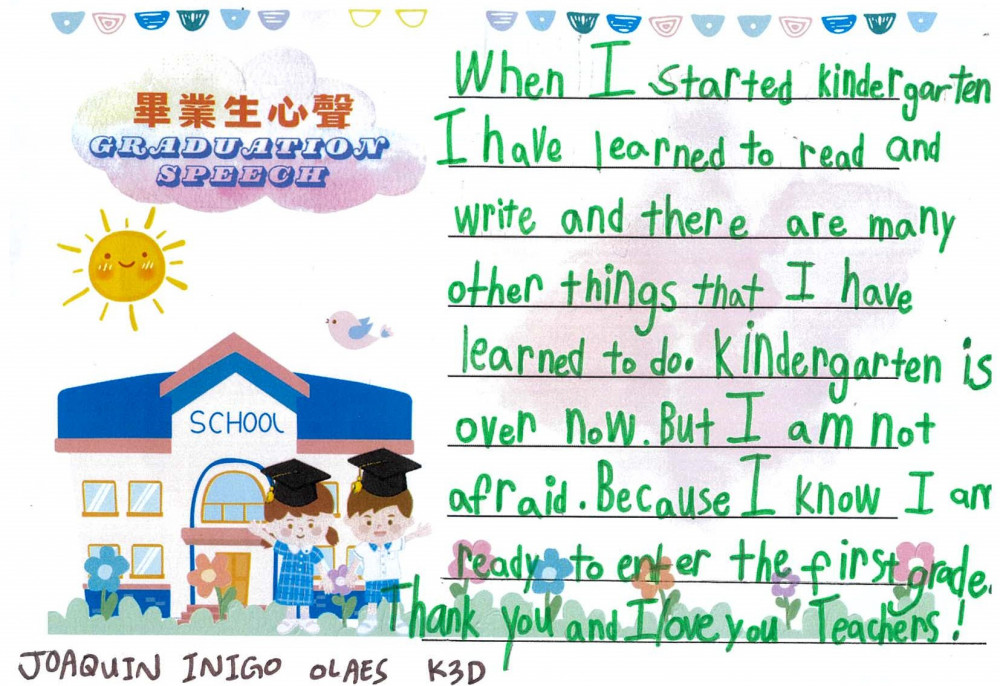 畢業生心聲
GRADUATION
SPEECH
SCHOOL
When I started kindergarten
I have learned to read and
write and there are many
other things that I have
learned to do. Kindergarten is
over now. But I am not
afraid. Because I know I am
ready to enter the first grade.
Thank you and I love you Teachers!
JOAQUIN INIGO OLAES K3D